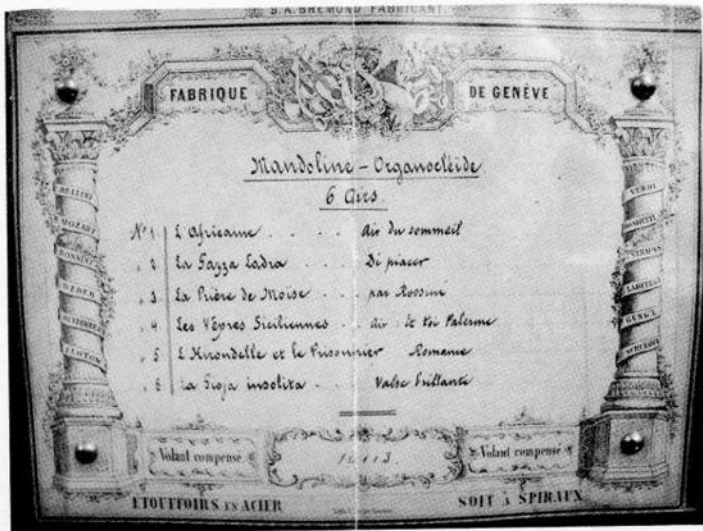 B. A. BREMOND FABRICANT.
FABRIQUE DE GENÈVE
Mandoline - Organocléide
6 Airs
Nº 1 L'Africaine . . . . . Air du sommeil
" 2 La Gazza Ladra . . . Di piacer
" 3 La Prière de Moise . . par Rossini
" 4 Les Vêpres Siciliennes . . Air : Et toi Palerme
" 5 L'Hirondelle et le Prisonnier Romance
" 6 La Gioja insolita . . . Valse brillante
BELLINI
MOZART
ROSSINI
WEBER
MEYERBEER
FLOTOW
VERDI
DONIZETTI
STRAUSS
LABITZKY
GUNG'L
Volant compensé
Volant compensé
ETOUFFOIRS EN ACIER
SOIT à SPIRAUX